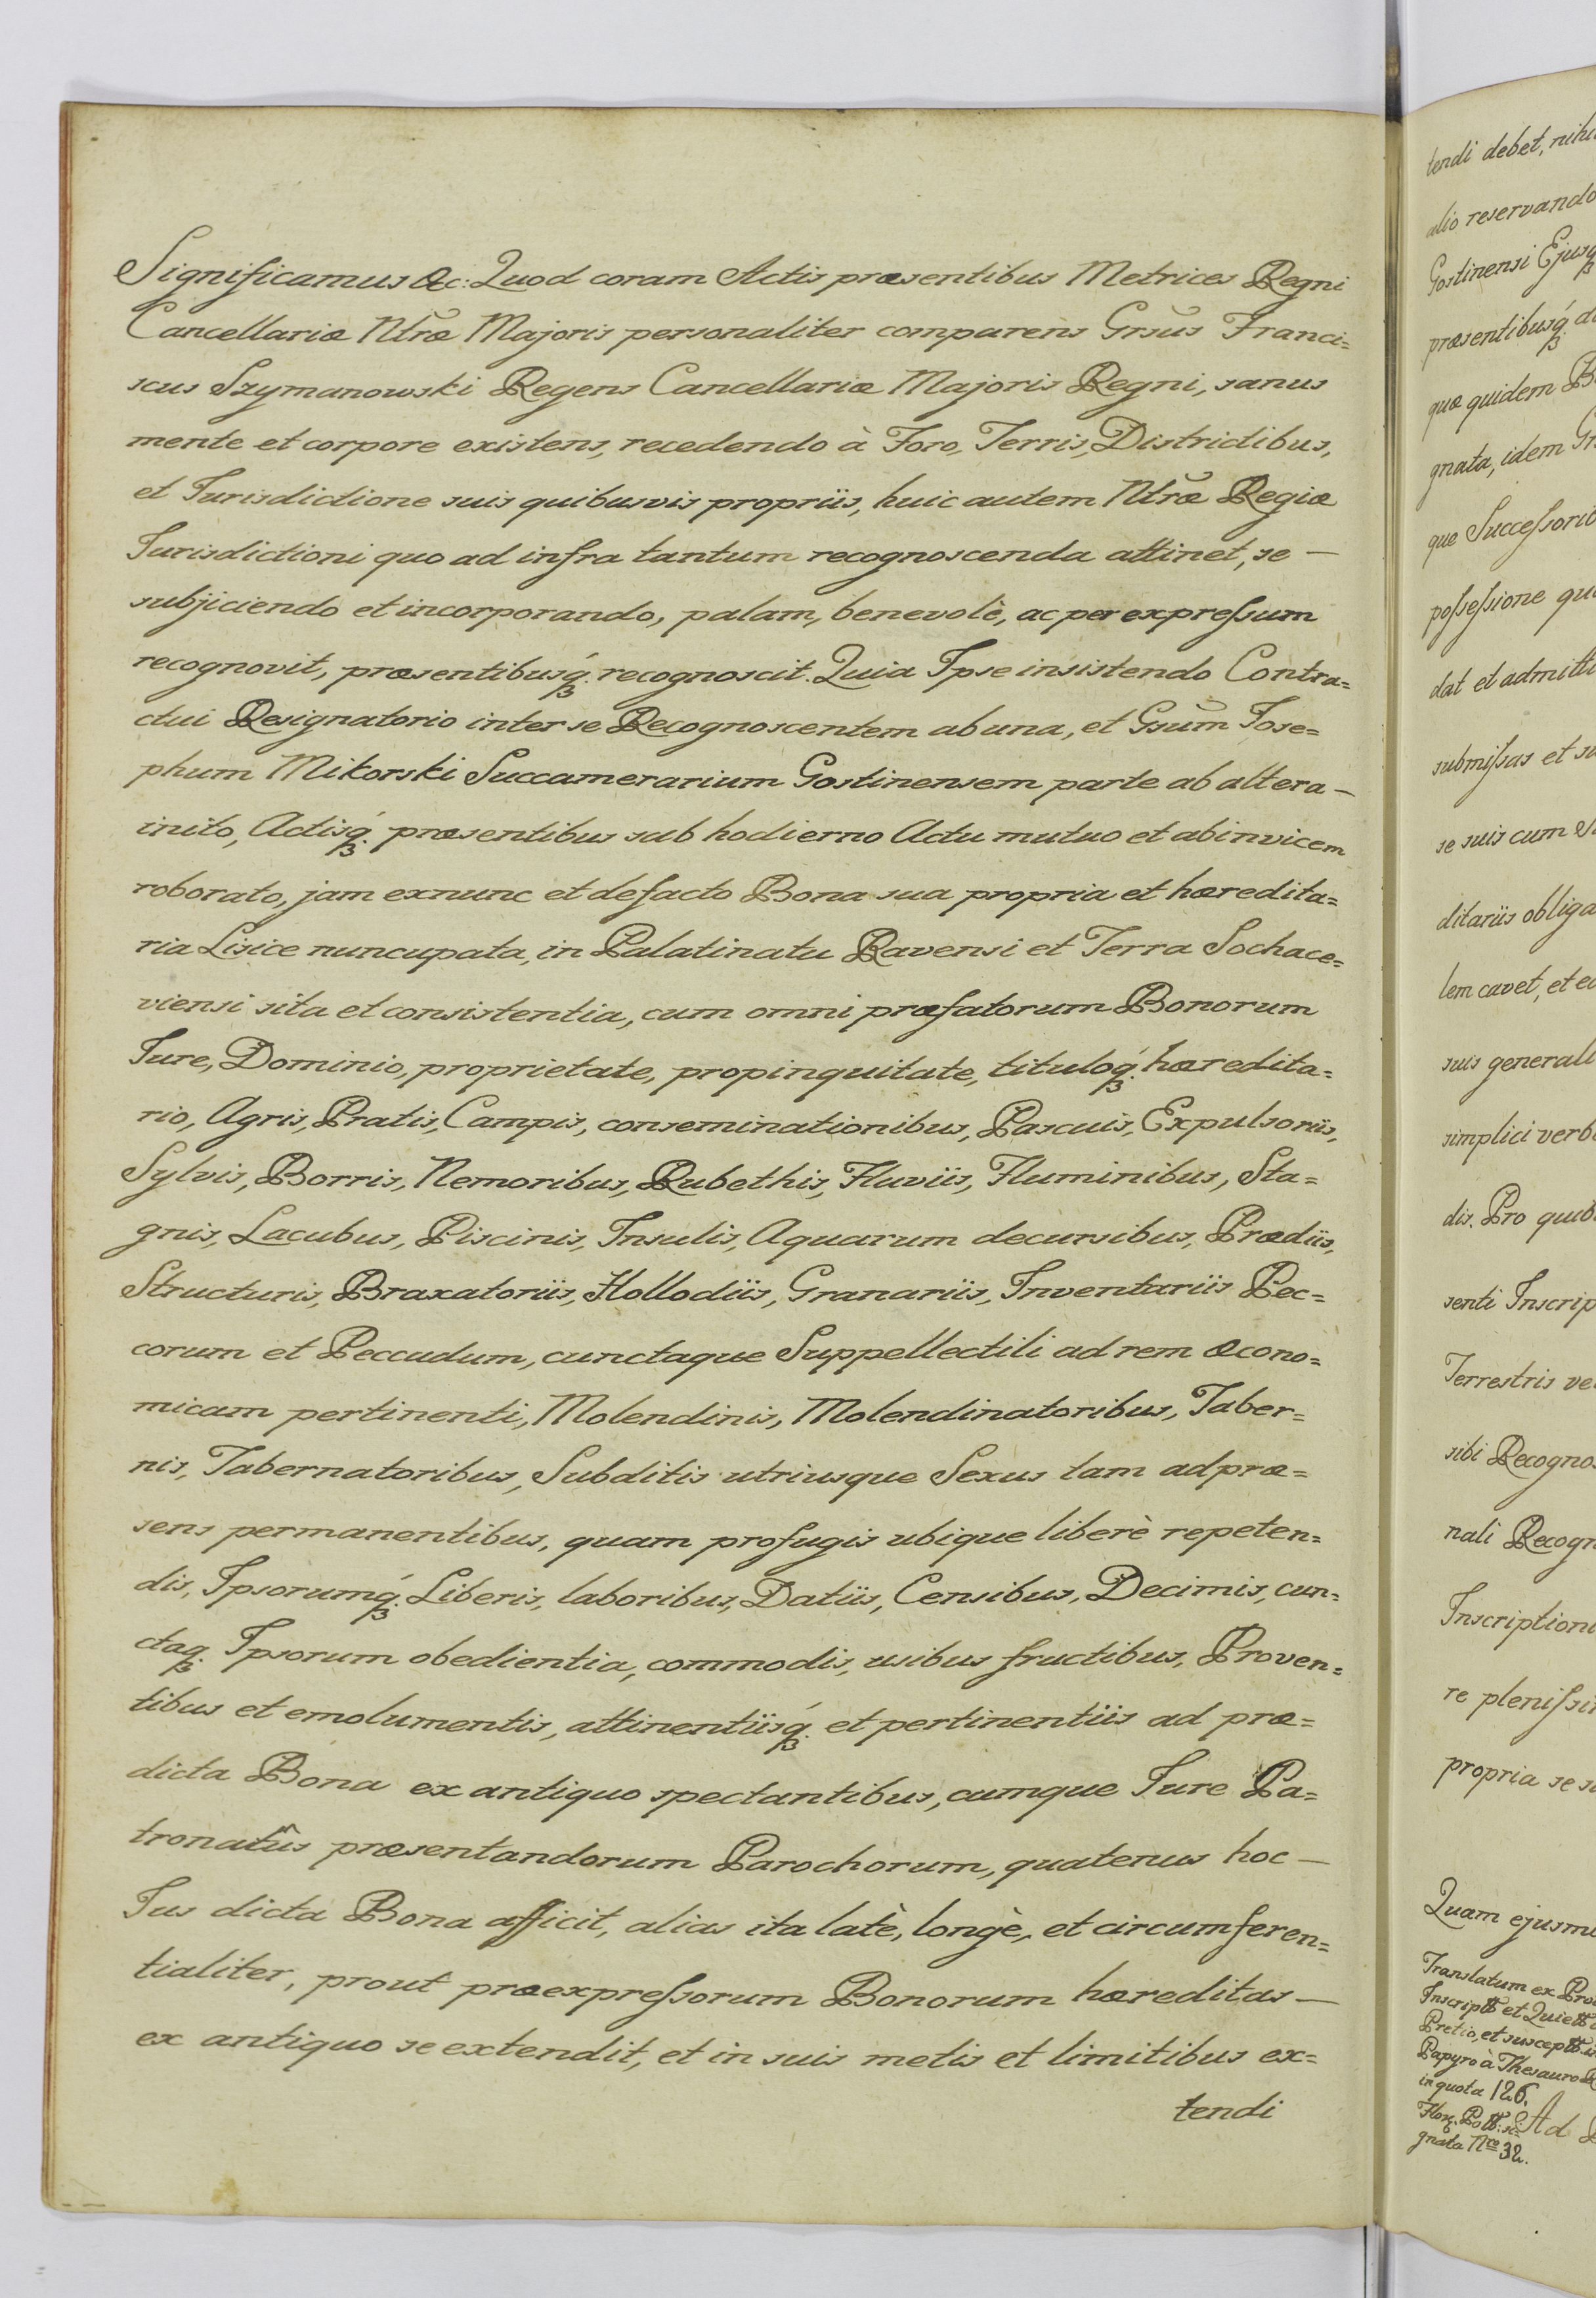 Significamus &c: Quod coram Actis præsentibus Metrices Regni
Cancellariæ Ntræ Majoris personaliter comparens Grsus Franci=
scus Szymanowski Regens Cancellariæ Majoris Regni, sanus
mente et corpore existens, recedendo à Foro, Terris, Districtibus,
et Jurisdictione suis quibusvis propriis, huic autem Ntræ Regiæ
Jurisdictioni quo ad infra tantum recognoscenda attinet, se —
subjiciendo et incorporando, palam, benevolè, ac per expressum
recognovit, præsentibusq́ꝫ. recognoscit. Quia Ipse insistendo Contra=
ctui Resignatorio inter se Recognoscentem ab una, et Gsum Jose=
phum Mikorski Succamerarium Gostinensem parte ab altera —
inito, Actisq́ꝫ. præsentibus sub hodierno Actu mutuo et abinvicem
roborato, jam exnunc et defacto Bona sua propria et hæredita=
ria Lisice nuncupata, in Palatinatu Ravensi et Terra Sochace=
viensi sita et consistentia, cum omni præfatorum Bonorum
Jure, Dominio, proprietate, propinquitate, tituloq́ꝫ. hæredita=
rio, Agris, Pratis, Campis, conseminationibus, Pascuis, Expulsoriis,
Sylvis, Borris, Nemoribus, Rubethis, Fluviis, Fluminibus, Sta=
gnis, Lacubus, Piscinis, Insulis, Aquarum decursibus, Prædiis,
Structuris, Braxatoriis, Hollodiis, Granariis, Inventariis Pec=
corum et Peccudum, cunctaque Suppellectili ad rem œcono=
micam pertinenti, Molendinis, Molendinatoribus, Taber=
nis, Tabernatoribus, Subditis utriusque Sexus tam ad præ=
sens permanentibus, quam profugis ubique liberè repeten=
dis, Ipsorumq́ꝫ. Liberis, laboribus, Datiis, Censibus, Decimis, cun=
ctaqꝫ. Ipsorum obedientia, commodis, usibus fructibus, Proven=
tibus et emolumentis, attinentiisq́ꝫ. et pertinentiis ad præ=
dicta Bona ex antiquo spectantibus, cumque Jure Pa=
tronatûs præsentandorum Parochorum, quatenus hoc —
Jus dicta Bona afficit, alias ita latè, longè, et circumferen=
tialiter, prout præexpressorum Bonorum hæreditas —
ex antiquo se extendit, et in suis metis et limitibus ex=
tendi
tendi debet,
alio reservando
Gostinensi
præsentibusq́ꝫ.
quæ quidem
gnata, idem
que
possessione
dat et
submissas et
se suis cum
ditariis
lem cavet, et
suis
simplici
dis. Pro
senti
Terrestris
sibi
nali
re
propria se
Quam
Translatum ex
et
Pretio, et
Papyro à Thesauro
in quota 126.
Ad
gnata Nro 32.